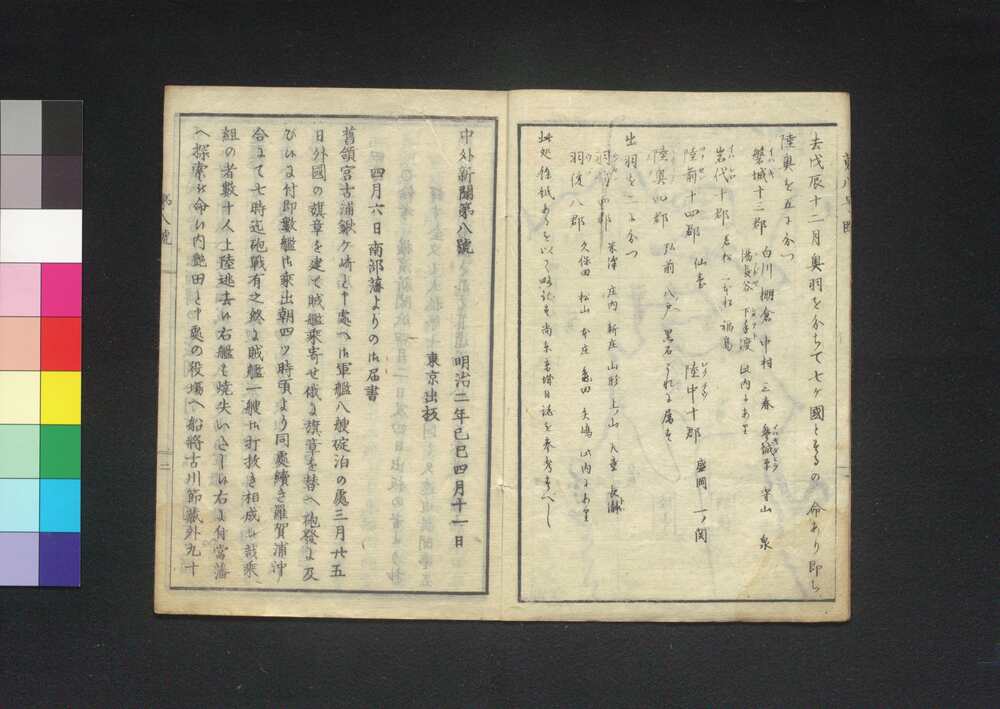 去戊辰十二月奥羽を分ちて七ケ國とするの命あり即ち
陸奥を五に分つ
磐城十三郡 白川 棚倉 中村 三春 磐城平 守山 泉
湯長谷 下手渡 以内にあり
岩代十郡 若松 二本松 福島
陸前十四郡 仙臺 陸中十郡 盛岡 一ノ関
陸奥四郡 弘前 八戸 黒石これに属す
出羽を二に分つ
羽前四郡 米澤 庄内 新庄 山形 上ノ山 天童 長瀞
羽後八郡 久保田 松山 本庄 亀田 矢嶋 以内にあり
此処餘紙あるを以て略記す尚東京城日誌を参考すへし
中外新聞第八號 明治二年己巳四月十一日
東京出板
四月六日南部藩よりの御届書
舊領宮古浦鍬ケ崎と申處へ御軍艦八艘碇泊の處三月廿五
日外國の旗章を建て賊艦乗寄せ俄に旗章を替へ砲發に及
ひ候に付即數艦御乗出朝四ツ時頃より同處續き羅賀浦沖
合にて七時迄砲戰有之終に賊艦一艘御打拔き相成候哉乗
組の者數十人上陸逃去候右艦も燒失いたし候右に付當藩
へ探索被命候内艶田と申處の役場へ船將古川節藏外九十
第八號
二